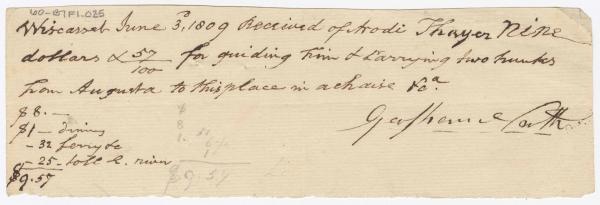 60-B7F1.025
Wiscasset June 3, 1809 Received of Arodi Thayer Nine
dollars & 57/100 for guiding him & carrying two trunks
from Augusta to this place in a chaise &ca.
$8. —
$1 — dining
- 32 ferry &c
- 25 - toll K. river
$9.57
$
8
1.
$9.57